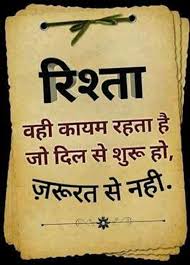 रिश्ता
वही कायम रहता है
जो दिल से शुरू हो,
ज़रूरत से नही.